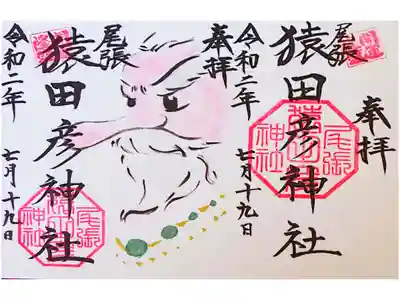 奉拝
尾張
猿田彦神社
令和二年
七月十九日
尾張
猿田彦
神社
奉拝
尾張
猿田彦神社
令和二年
七月十九日
尾張
神社